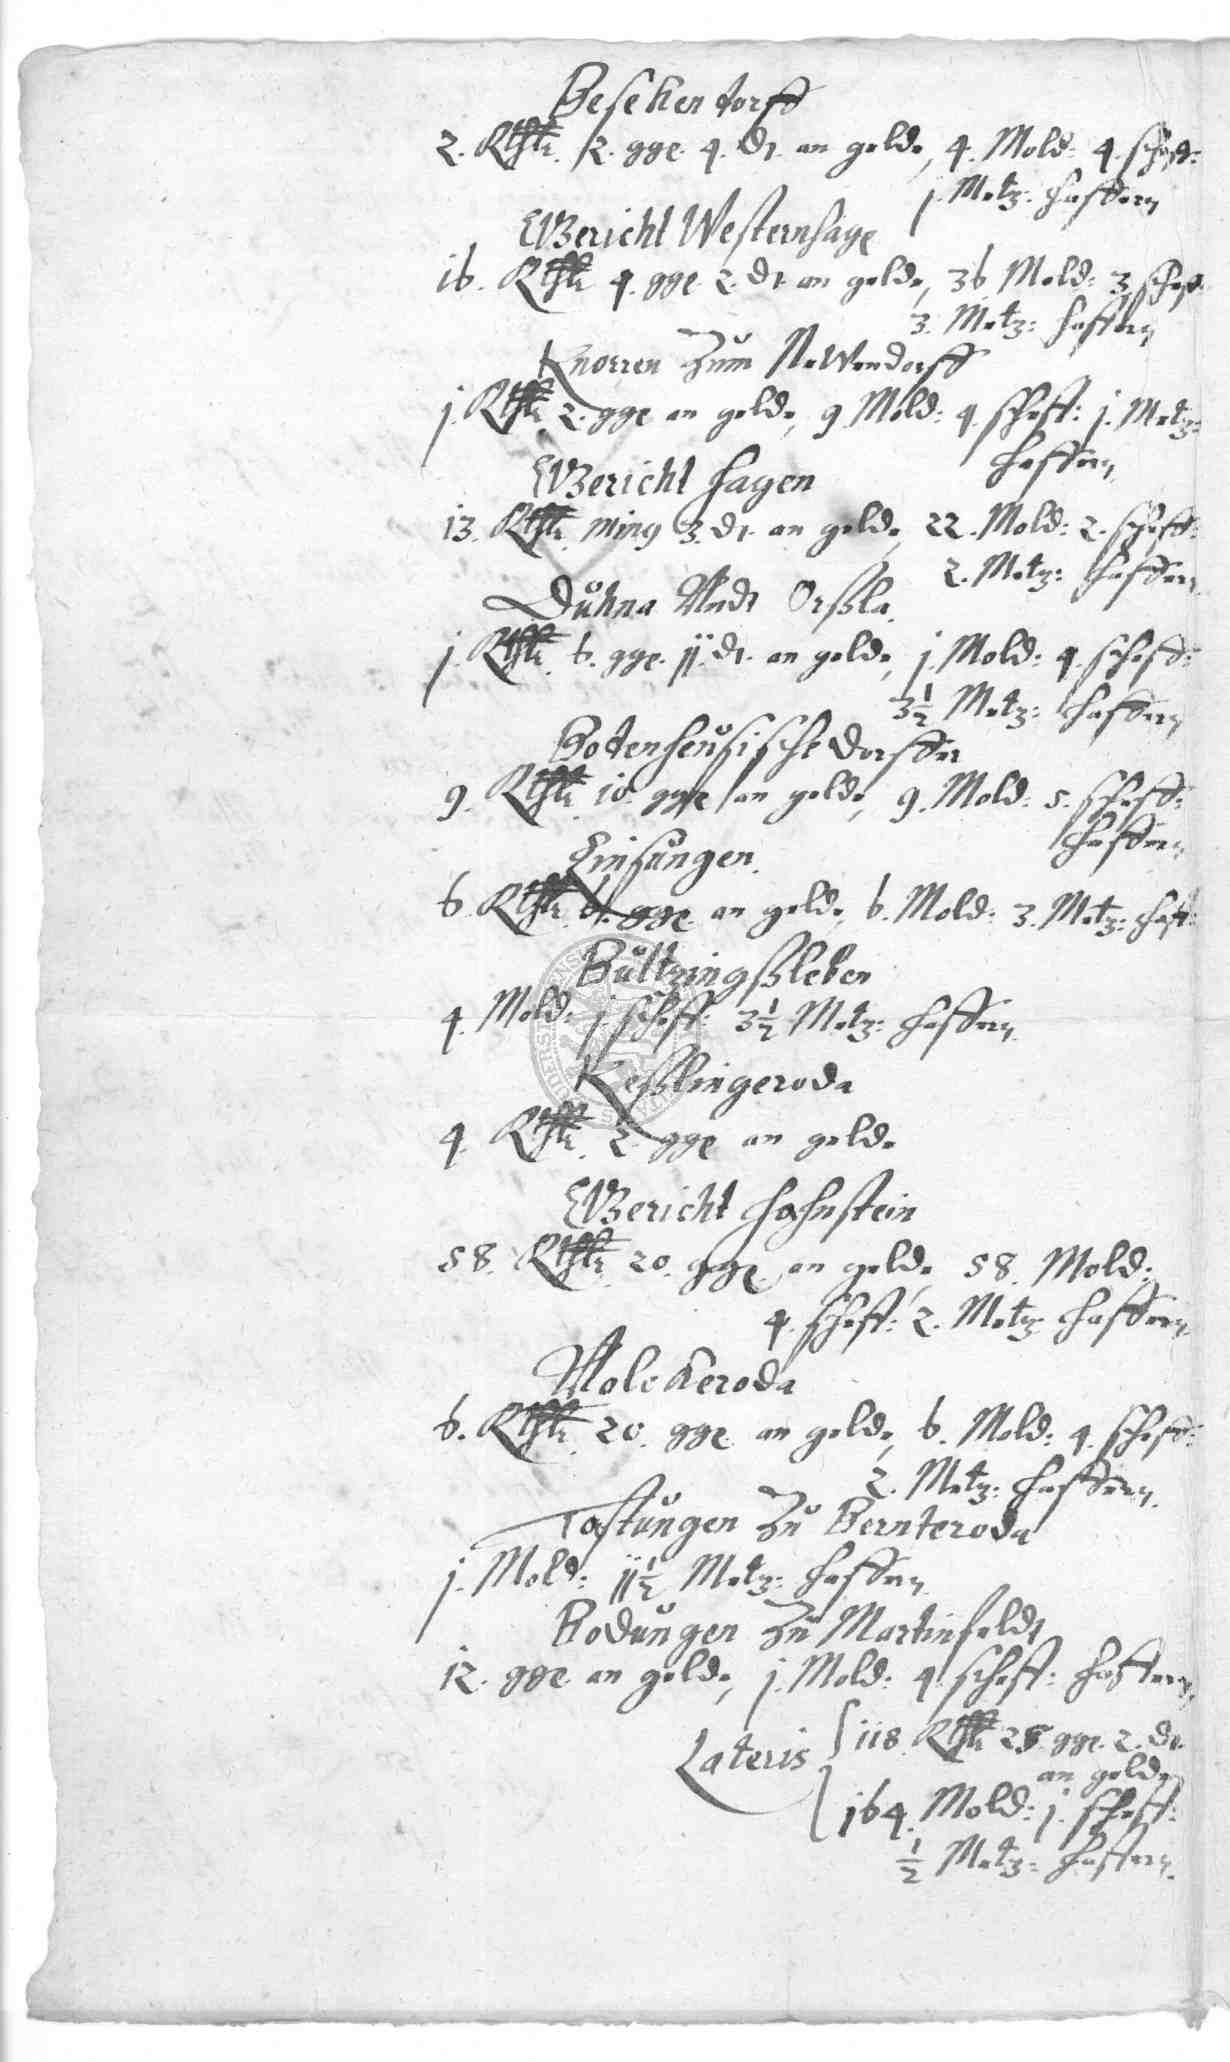 Besekendorff
2. Rthlr. 12. gge. 4. dt. an gelde, 4. Mold: 4. scheff:
j. Metz: haffern
Gericht Westernhage
16. Rthlr 4. gge. 2. dt. an gelde, 36 Mold: 3. scheff:
3. Metz: haffern
Knorren Zum Newendorff
j. Rthlr. 2. gge an gelde, 9 Mold: 4. scheff: j. Metz:
haffern
Gericht Hagen
13. Rthlr. Minq 3. dt. an gelde, 22. Mold: 2. scheff:
2. Metz: haffern
Duhna Undt Orßla
j. Rthlr. 6. gge. jj. dt. an gelde, j. Mold: 4. scheff:
3½ Metz: haffern
Bodenheusische dorffer
9. Rthlr. 10. gge an gelde, 9. Mold: 5. scheff:
haffern
Linsungen
6. Rthlr. gge. an gelde, 6. Mold: 3. Metz: haff:
Bultzingßleben
4. Mold: j. scheff: 3½ Metz: haffern
Keßlingeroda
4. Rthlr. 2. gge an gelde
Gericht Hahnstein
58. Rthlr. 20. gge. an gelde, 58. Mold:
4. scheff: 2. Metz haffern
Wolckeroda
6. Rthlr. 20. gge an gelde, 6. Mold: 4. scheff:
2. Metz: haffern
Tastungen Zu Bernteroda
j. Mold: jj½ Metz: haffern
Bodungen Zu Martinfeldt
12. gge. an gelde, j. Mold: 4. scheff: haffern
Lateris 118. Rthlr gge. 2. dt.
an gelde
164. Mold: j. scheff:
½ Metz: haffern